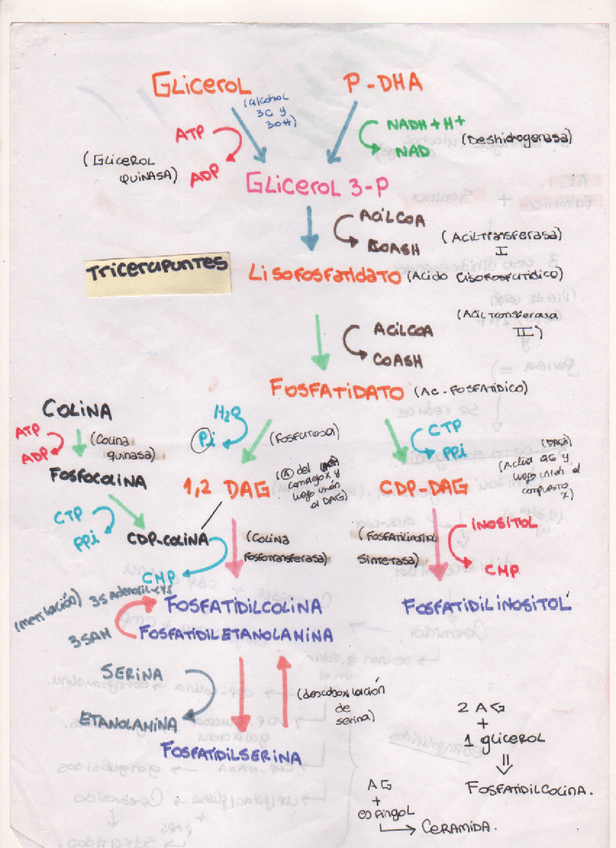 GLicerol
P-DHA
(alcohol
3C y
3OH)
ATP
ADP
(GLicerol
quinasa)
NADH+H+
NAD
(Deshidrogenasa)
Glicerol 3-P
AcilCoA
COASH
(Aciltransferasa
I
Tricerapuntes
Lisofosfatidato (Acido Lisofosfatidico)
AcilCoA
COASH
(Aciltransferasa
II)
Fosfatidato (Ac. Fosfatídico)
Colina
ATP
ADP
(Colina
quinasa)
Fosfocolina
CTP
PPi
CDP-colina
CMP
H2O
Pi
(Fosfatasa)
1,2 DAG
CTP
PPi
CDP-DAG
(Colina
fosfotransferasa)
(Fosfatilinositol
sintetasa)
Inositol
CMP
(metilación)
Fosfatidilcolina
3SAH
Fosfatidiletanolamina
Fosfatidilinositol
Serina
Etanolamina
(descarboxilación
de
serina)
Fosfatidilserina
2 AG
+
1 glicerol
Fosfatidilcolina.
AG
+
esfingol
Ceramida.